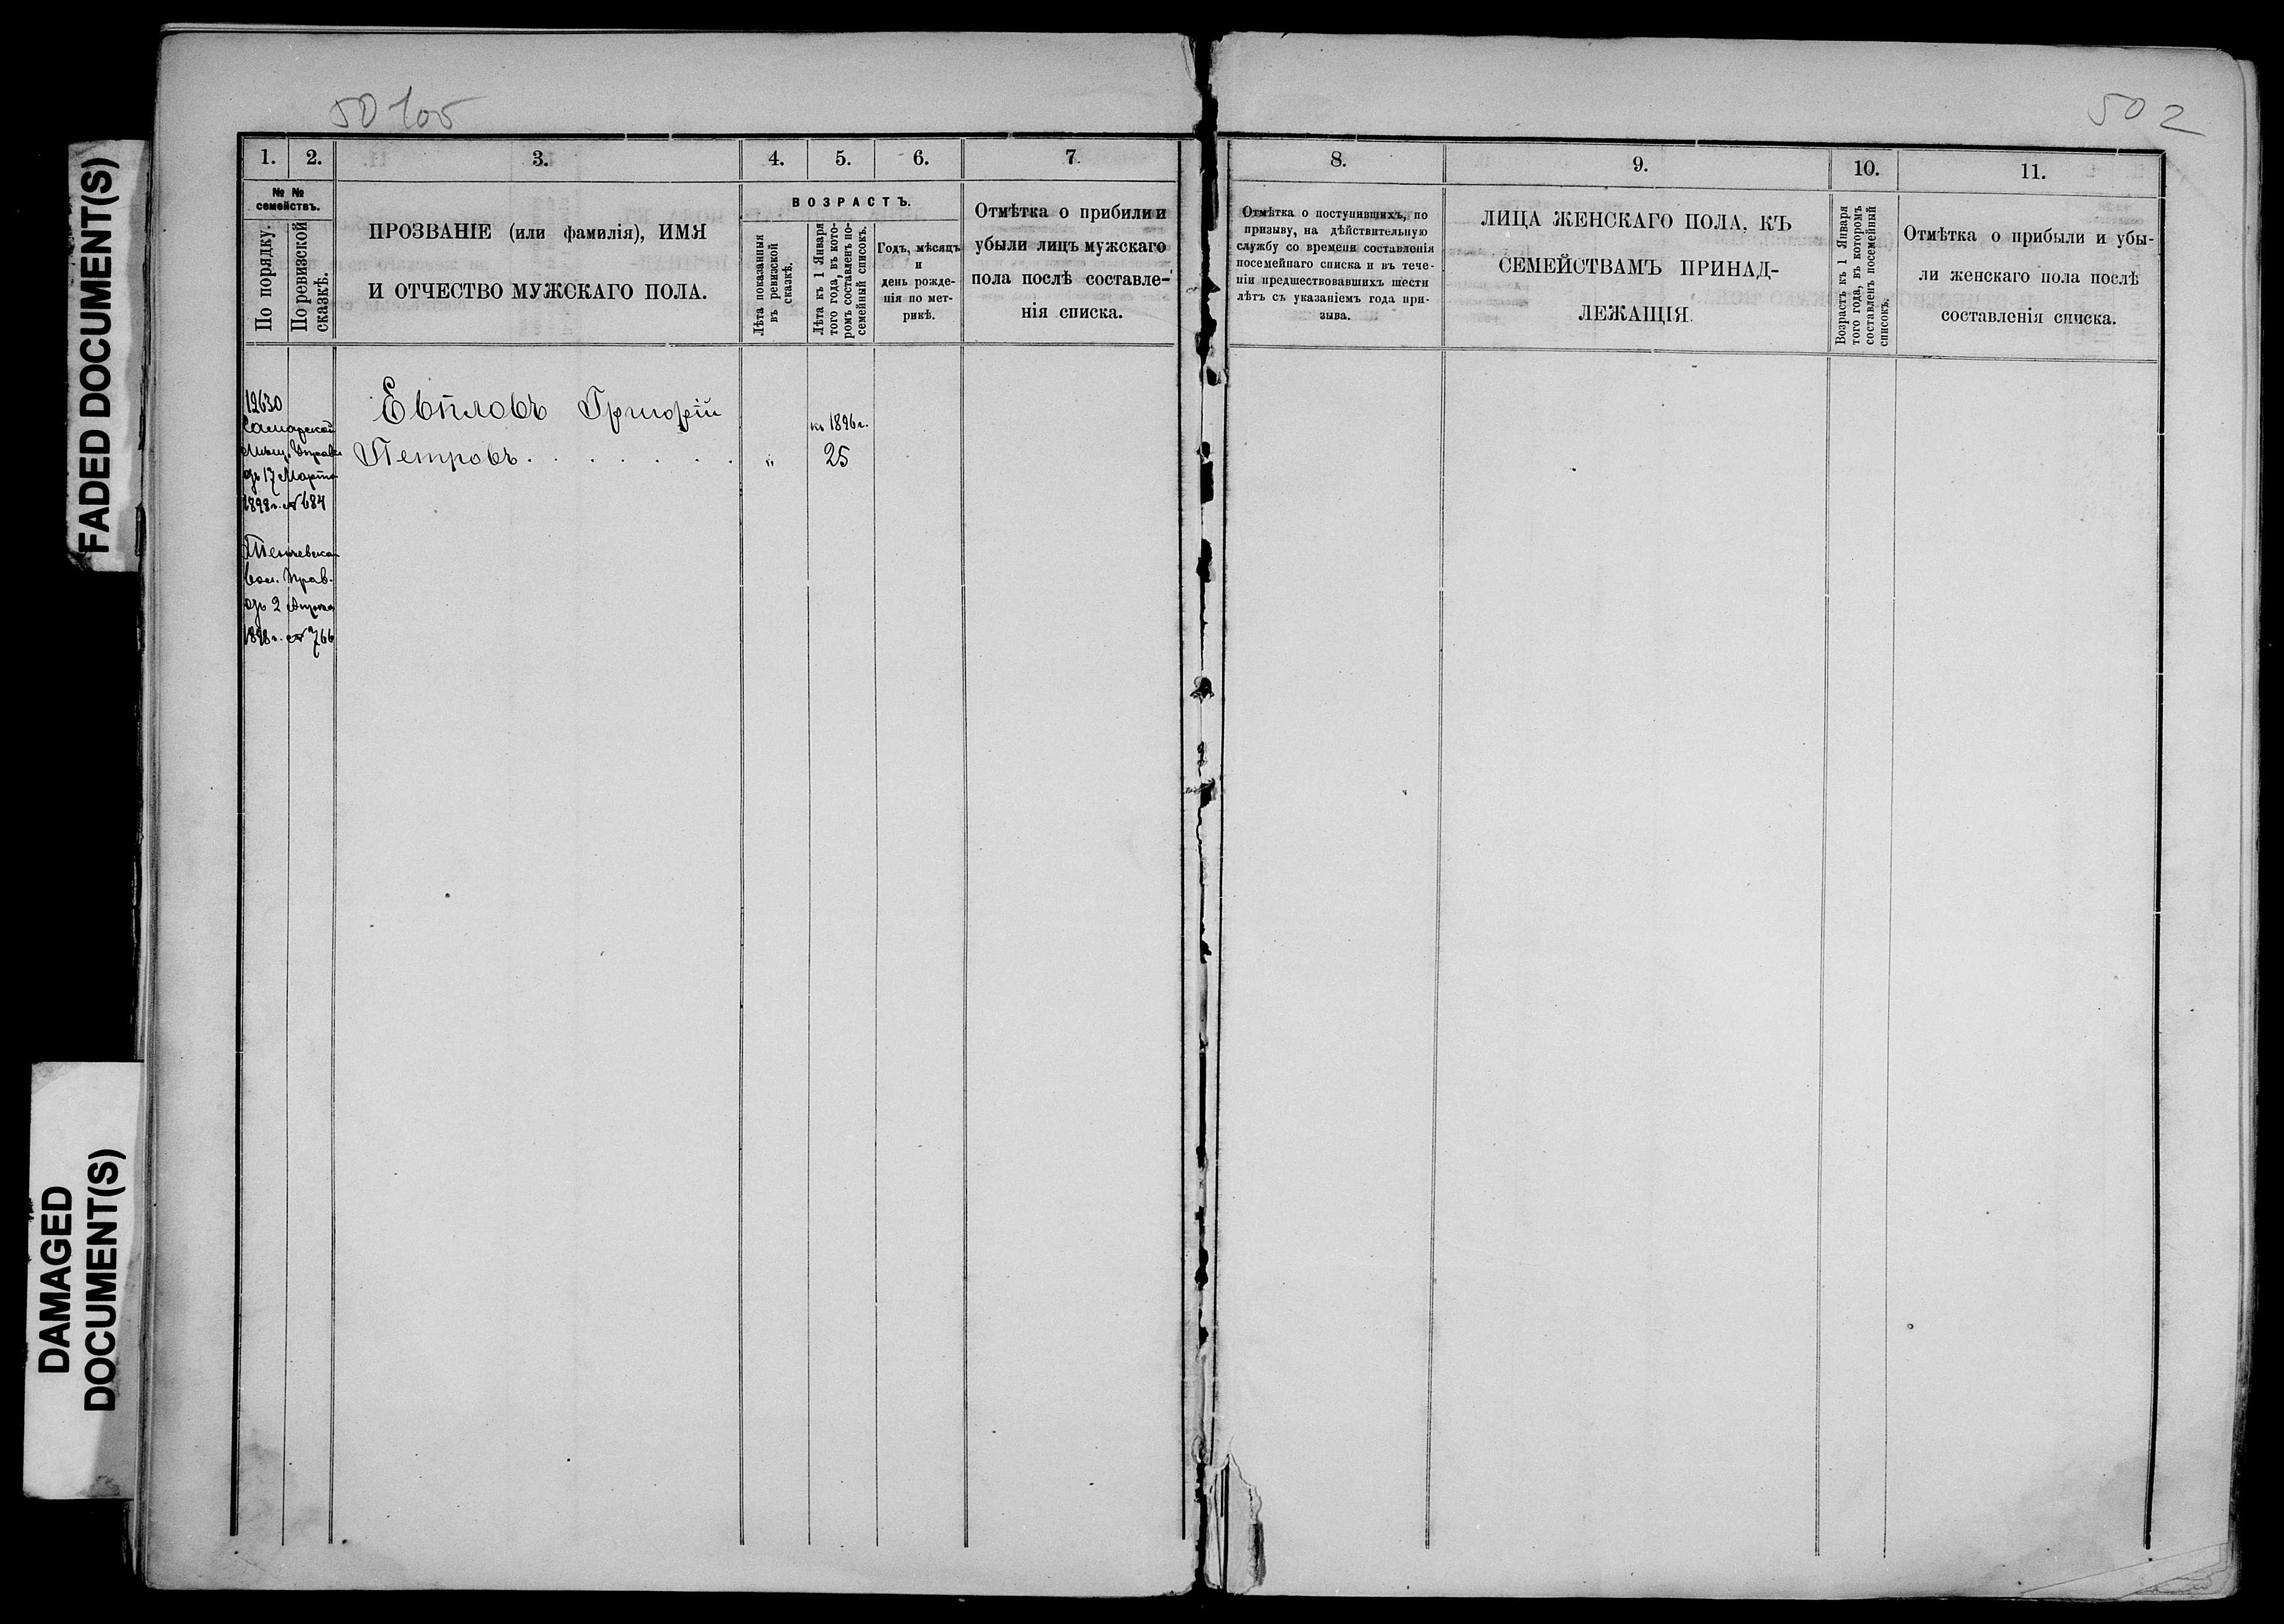 FADED DOCUMENT(S)
DAMAGED
DOCUMENT(S)
50
502
1.
2.
3.
4.
5.
6.
7.
№ №
семействъ.
По порядку.
По ревизской
сказкѣ.
ПРОЗВАНІЕ (или фамилія), ИМЯ
И ОТЧЕСТВО МУЖСКАГО ПОЛА.
ВОЗРАСТЪ.
Лѣта показанныя
въ ревизской
сказкѣ.
Лѣта къ 1 Января
того года, въ кото-
ромъ составленъ по-
семейный списокъ.
Годъ, мѣсяцъ
и
день рожде-
нія по мет-
рикѣ.
Отмѣтка о прибыли и
убыли лицъ мужскаго
пола послѣ составле-
нія списка.
8.
9.
10.
11.
Отмѣтка о поступившихъ, по
призыву, на дѣйствительную
службу со времени составленія
посемейнаго списка и въ тече-
ніи предшествовавшихъ шести
лѣтъ съ указаніемъ года при-
зыва.
ЛИЦА ЖЕНСКАГО ПОЛА, КЪ
СЕМЕЙСТВАМЪ ПРИНАД-
ЛЕЖАЩІЯ.
Возрастъ къ 1 Января
того года, въ которомъ
составленъ посемейный
списокъ.
Отмѣтка о прибыли и убы-
ли женскаго пола послѣ
составленія списка.
12630
Самарской
Мѣщ. Управы
17 Марта
1898г. № 684
вол. Прав.
2 Апрѣля
1898г. № 766
Григорій
Петровъ . . . . . . . „ 25
къ 1896г.